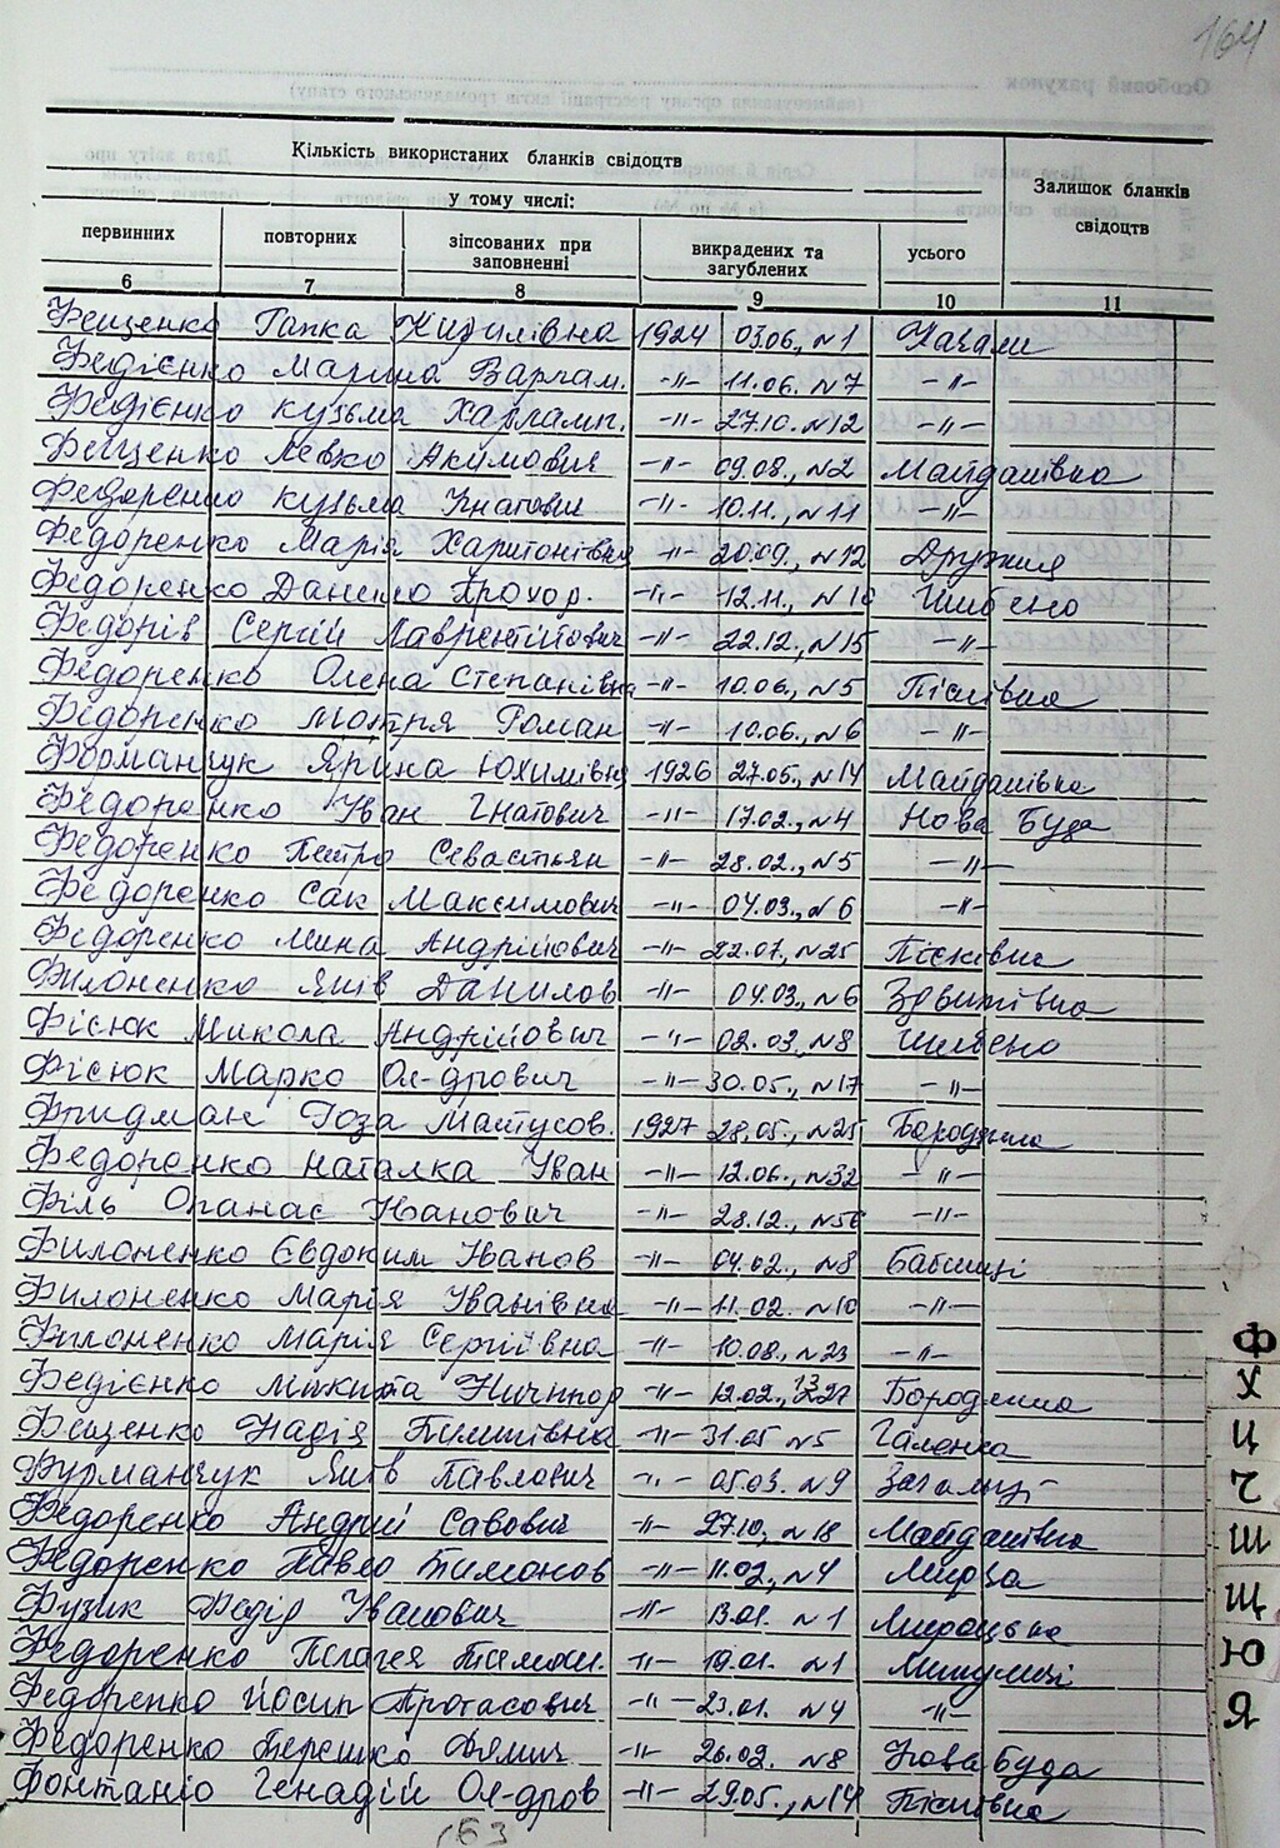 164
Кількість використаних бланків свідоцтв
Залишок бланків свідоцтв
у тому числі:
первинних повторних зіпсованих при заповненні викрадених та загублених усього
6 7 8 9 10 11
Фещенко Гапка 1924 03.06., N1 Качали
Федієнко Марина Варлам. -"- 11.06. N7 -"-
Федієнко Кузьма Харламп. -"- 27.10. N12 -"-
Фещенко Левко Акимович -"- 09.08., N2 Майданівка
Федоренко Кузьма Гнатович -"- 10.11., N11 -"-
Федоренко Марія Харитонівна -"- 20.09., N12 Дружня
Федоренко Данило Прохор. -"- 12.11., N10 Шибено
Федорів Сергій Лаврентійович -"- 22.12., N15 -"-
Федоренко Олена Степанівна -"- 10.06., N5 Пісківка
Федоренко Мотря Роман -"- 10.06., N6 -"-
Форманчук Ярина Юхимівна 1926 27.05., N14 Майданівка
Федоренко Іван Гнатович -"- 17.02., N4 Нова Буда
Федоренко Петро Севастьян -"- 28.02., N5 -"-
Федоренко Сак Максимович -"- 04.03., N6 -"-
Федоренко Мина Андрійович -"- 22.07., N25 Пісківка
Филоненко Яків Данилов -"- 04.03., N6 Здвижівка
Фісюк Микола Андрійович -"- 02.03., N8 Шибено
Фісюк Марко Ол-дрович -"- 30.05., N17 -"-
Фридман Роза Матусов. 1927 28.05., N25 Бородянка
Федоренко Наталка Іван -"- 12.06., N32 -"-
Філь Опанас Іванович -"- 28.12., N56 -"-
Филоненко Євдоким Іванов -"- 04.02., N8 Бабинці
Филоненко Марія Іванівна -"- 11.02. N10 -"-
Филоненко Марія Сергіївна -"- 10.08., N23 -"-
Федієнко Микита Ничипор -"- 12.02., Бородянка
Фещенко Надія Пилипівна -"- 31.05 N5 Галенка
Фурманчук Яків Павлович -"- 05.03. N9 Загальці
Федоренко Андрій Савович -"- 27.10, N18 Майданівка
Федоренко Павло Тимонов -"- 11.02., N4 Мирча
Фузик Федір Іванович -"- 13.01. N1 Мироцьке
Федоренко Пелагея Тимон. -"- 19.01. N1 Микуличі
Федоренко Йосип Протасович -"- 23.01. N4 -"-
Федоренко Терешко Дямич -"- 26.02. N8 Нова Буда
Фонтаніо Генадій Ол-дров -"- 29.05., N14 Пісківка
163
Ф
Х
Ц
Ч
Ш
Щ
Ю
Я